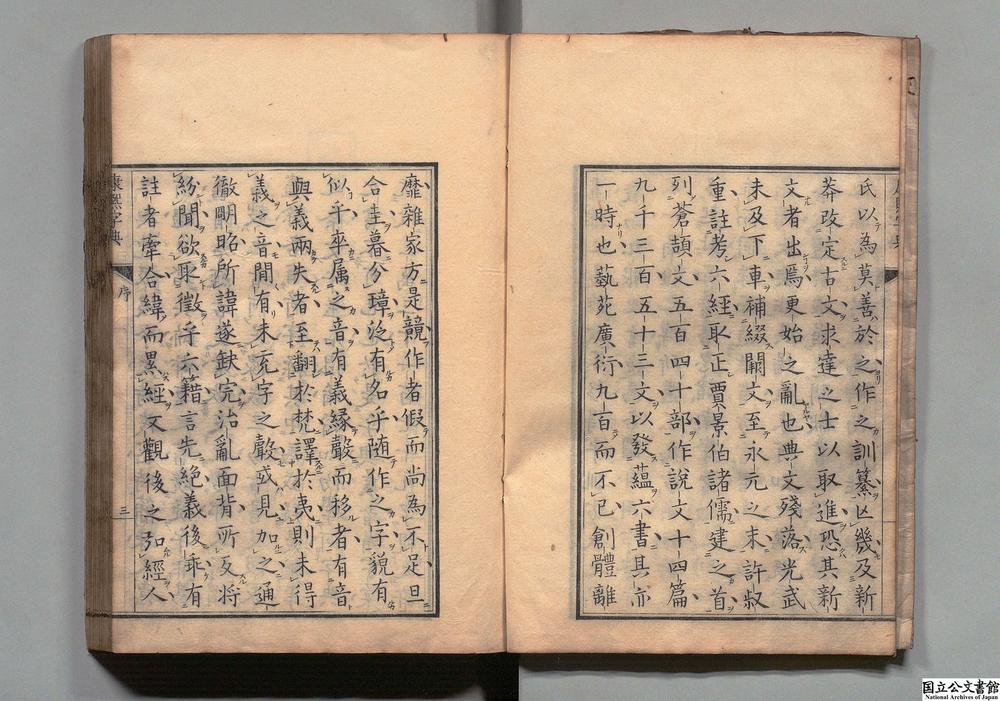 氏以為莫善於之作之訓纂亾幾及新
莽改定古文求達之士以取進恐其新
文者出焉更始之亂也典文殘落光武
未及下車補綴闕文至永元之末許叔
重註考六經取正賈景伯諸儒建之首
列蒼頡文五百四十部作說文十四篇
九千三百五十三文以發蘊六書其亦
一時也蓺苑廣衍九百而不已創體離
靡雜家方是競作者假而尚為不足旦
合圭暮分璋泛有名乎随作之字貌有
似乎率属之音有義縁聲而移者有音
與義兩失者至翻於梵譯於夷則未得
義之音間有未充字之聲或見加之通
徹明昭所諱遂缺完治亂面背所反将
紛聞欲取徴乎六籍言先絶義後乖有
註者牽合緯而累經又觀後之弘經人
康熙字典
序
三
国立公文書館
National Archives of Japan